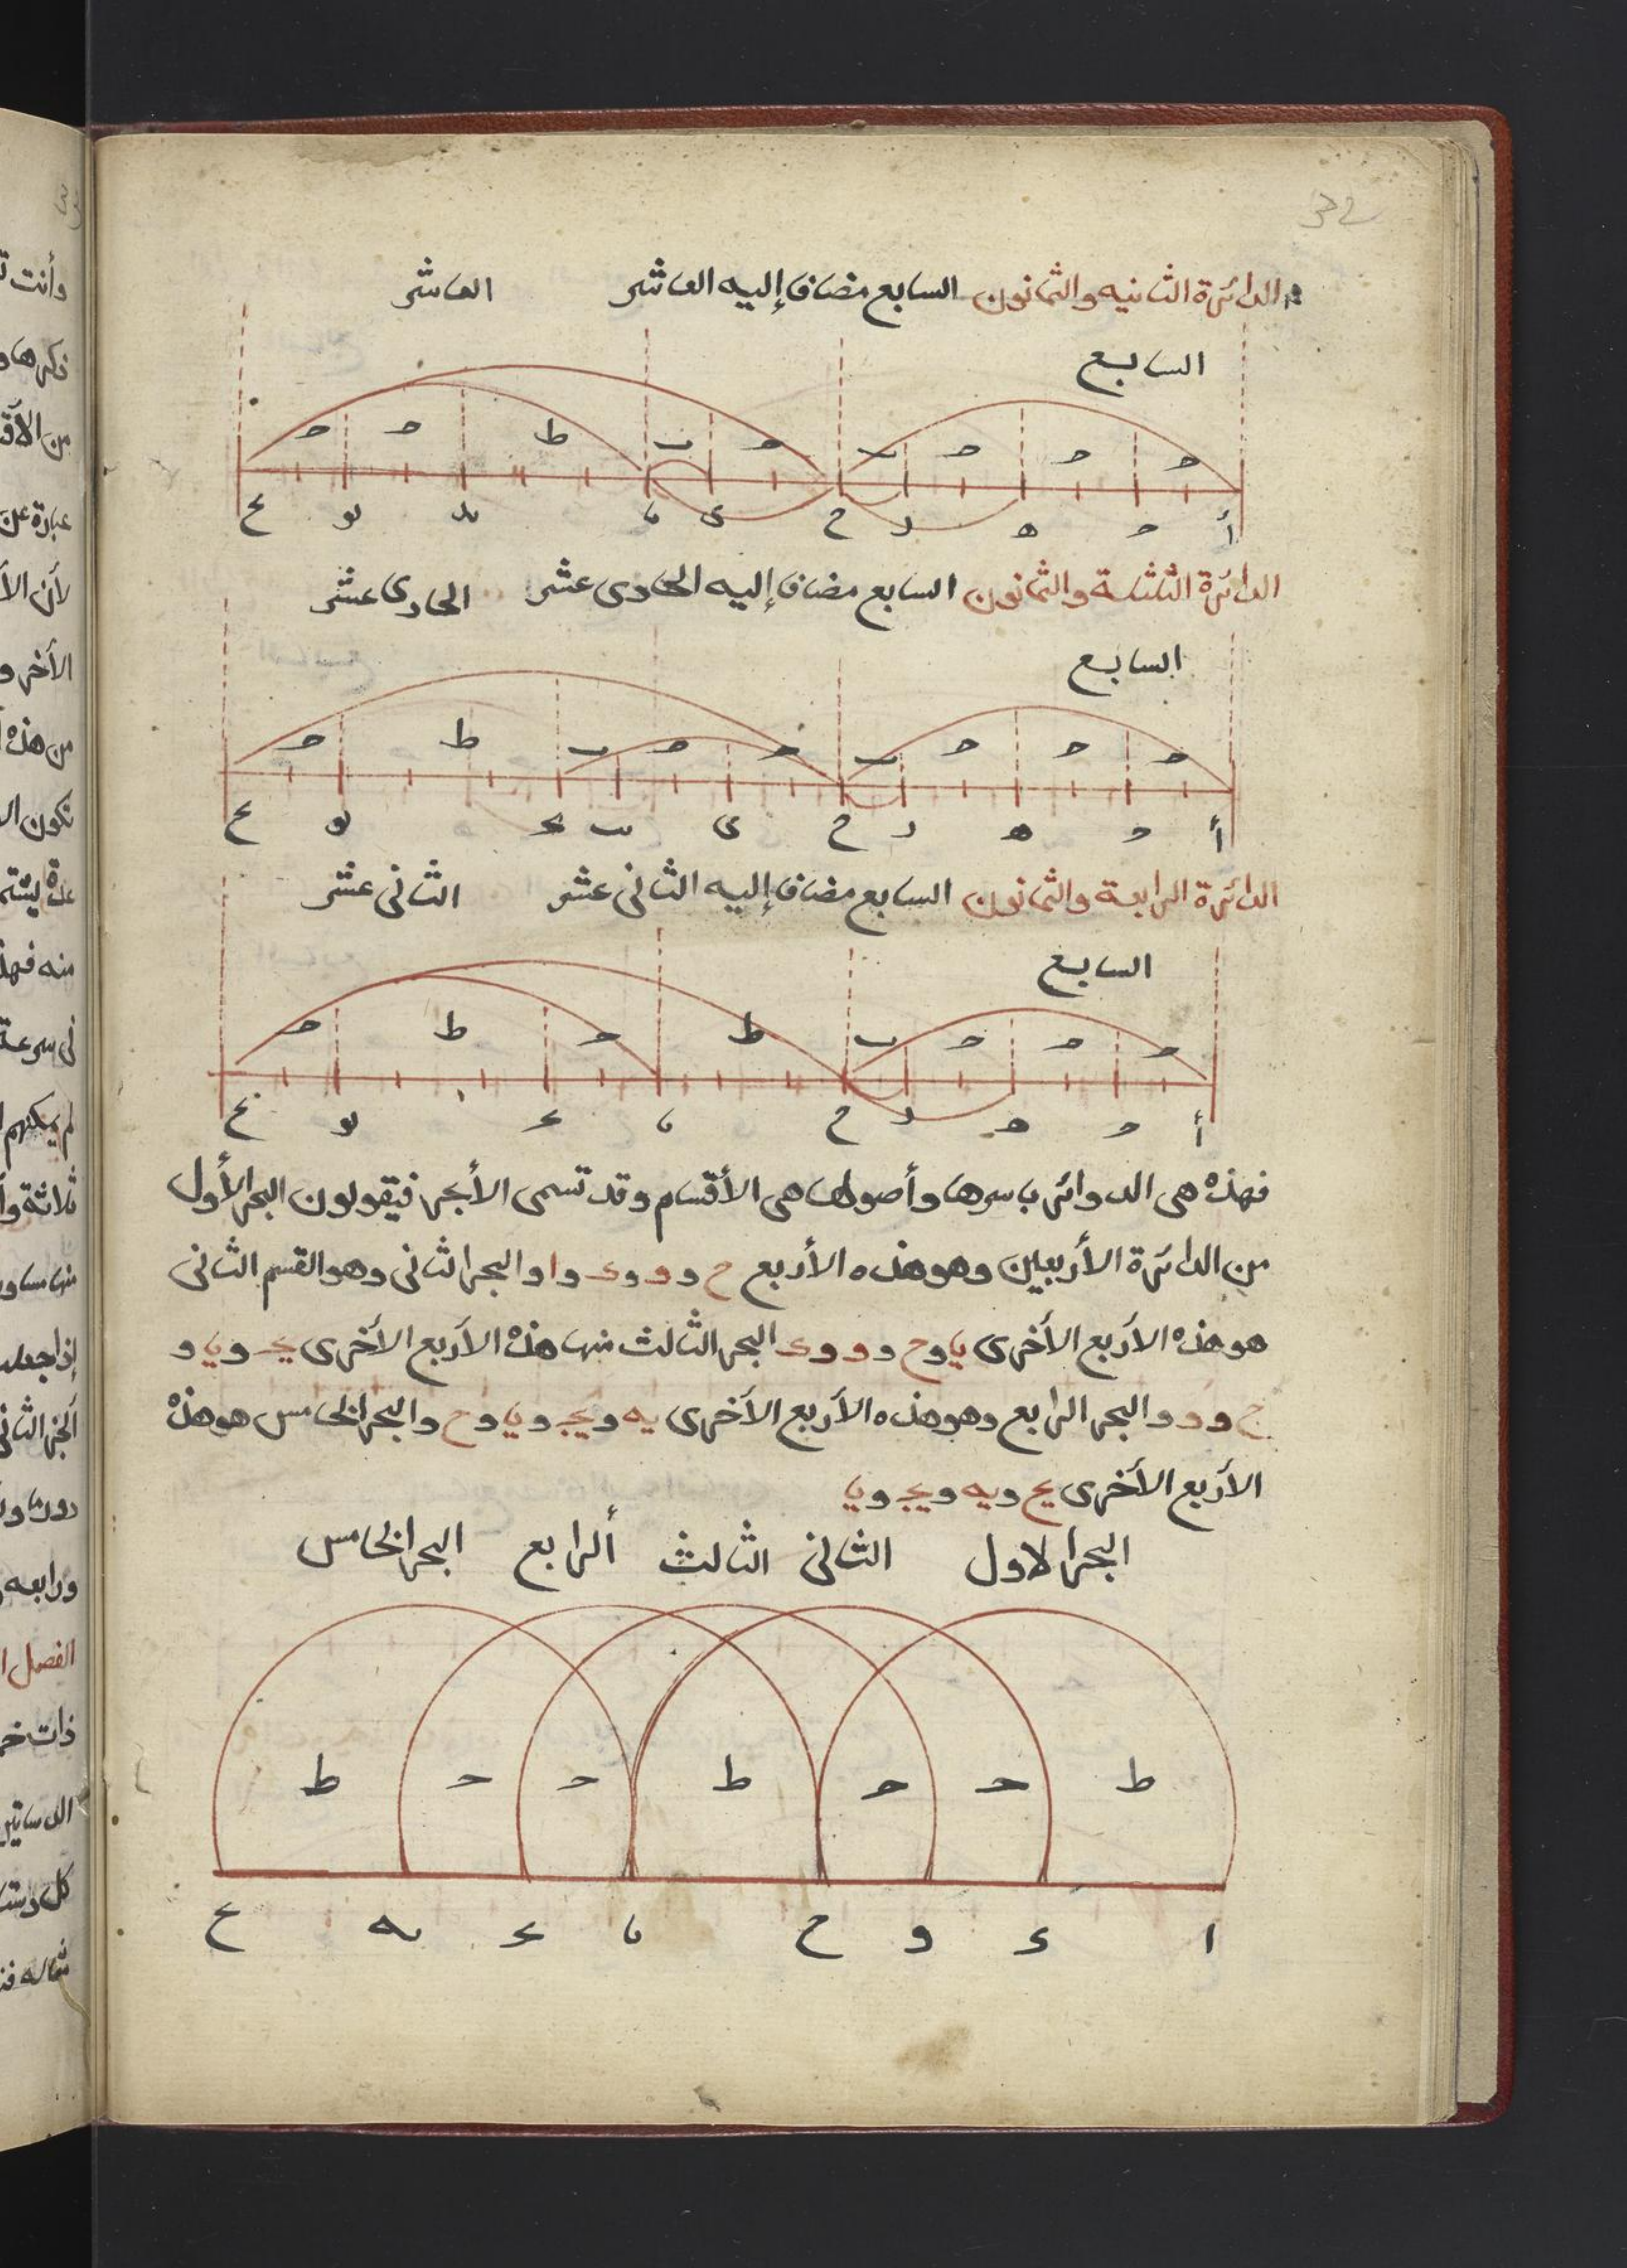 32
الدائرة الثانيه والثمانون السابع مضاف إليه العاشر العاشر
السابع
ح ح ط ب ح ب ح ح ح
أ ح ه د ح ى يا يد يو يح
الدائرة الثالثة والثمانون السابع مضاف إليه الحادى عشر الحادى عشر
السابع
ح ط ب ح ح ب ح ح ح
أ ح ه د ح ى يب يج يو يح
الدائرة الرابعة والثمانون السابع مضاف إليه الثانى عشر الثانى عشر
السابع
ح ط ح ط ب ح ح ح
أ ح ه د ح يا يج يو يح
فهذه هى الدوائر باسرها وأصولها هى الأقسام وقد تسمى الأبحر فيقولون البحر الأول
من الدائرة الأربعين وهو هذه الأربع ح و و و د و ا والبحر الثانى وهو القسم الثانى
هو هذه الأربع الأخرى يا و ح و و و د البحر الثالث منها هذه الأربع الأخرى يج و يا و
ح و و والبحر الرابع وهو هذه الأربع الأخرى يه و يج و يا و ح والبحر الخامس هو هذه
الأربع الأخرى يح و يه و يج و يا
البحر الاول الثانى الثالث ألرابع البحر الخامس
ط ح ح ط ح ح ط
ا د و ح يا يج يه يح